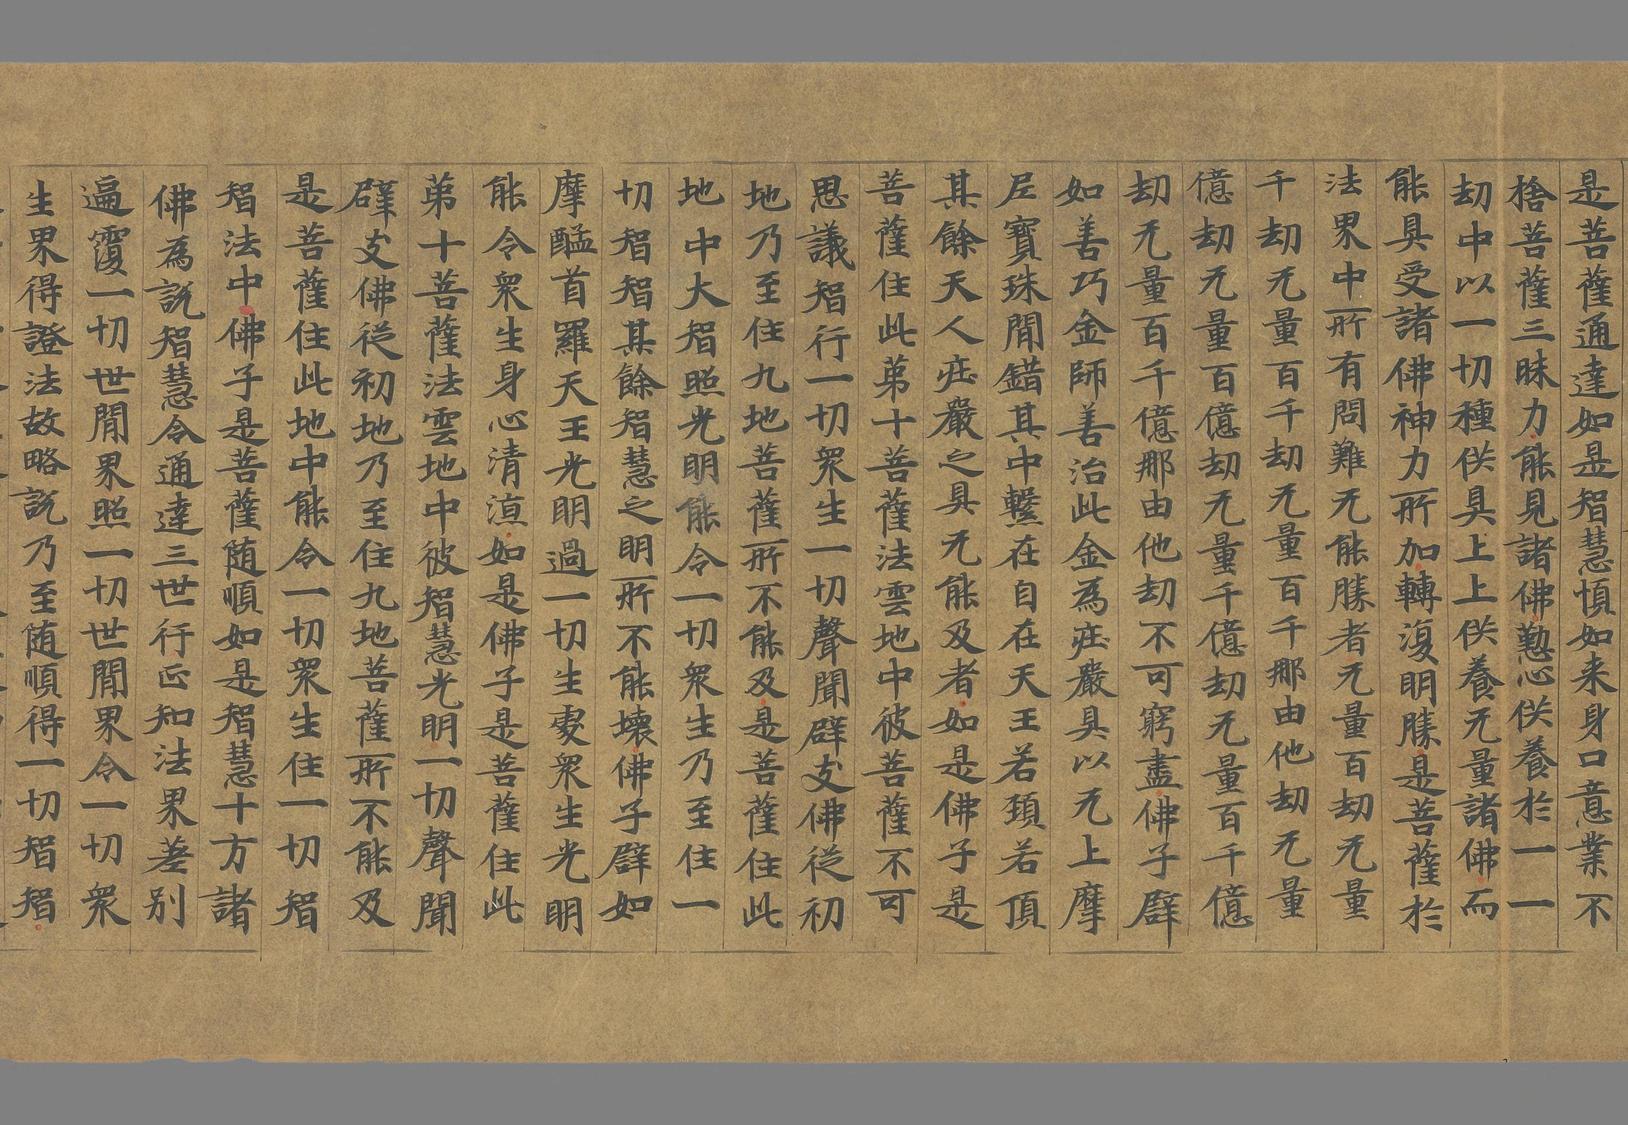 是菩薩通達如是智慧慎如来身口意業不
捨菩薩三昧力能見諸佛懃心供養於一一
劫中以一切種供具上上供養无量諸佛而
能具受諸佛神力所加轉復明勝是菩薩於
法界中所有問難无能勝者无量百劫无量
千劫无量百千劫无量百千那由他劫无量
億劫无量百億劫无量千億劫无量百千億
劫无量百千億那由他劫不可窮盡佛子辟
如善巧金師善治此金為疵嚴具以无上摩
尼寶珠閒錯其中繫在自在天王若頚若頂
其餘天人疵嚴之具无能及者如是佛子是
菩薩住此弟十菩薩法雲地中彼菩薩不可
思議智行一切衆生一切聲聞辟支佛從初
地乃至住九地菩薩所不能及是菩薩住此
地中大智照光明能令一切衆生乃至住一
切智智其餘智慧之明所不能壊佛子辟如
摩醯首羅天王光明過一切生䖏衆生光明
能令衆生身心清涼如是佛子是菩薩住此
弟十菩薩法雲地中彼智慧光明一切聲聞
辟支佛從初地乃至住九地菩薩所不能及
是菩薩住此地中能令一切衆生住一切智
智法中佛子是菩薩随順如是智慧十方諸
佛為説智慧令通達三世行正知法界差別
遍覆一切世閒界照一切世閒界令一切衆
生界得證法故略説乃至随順得一切智智